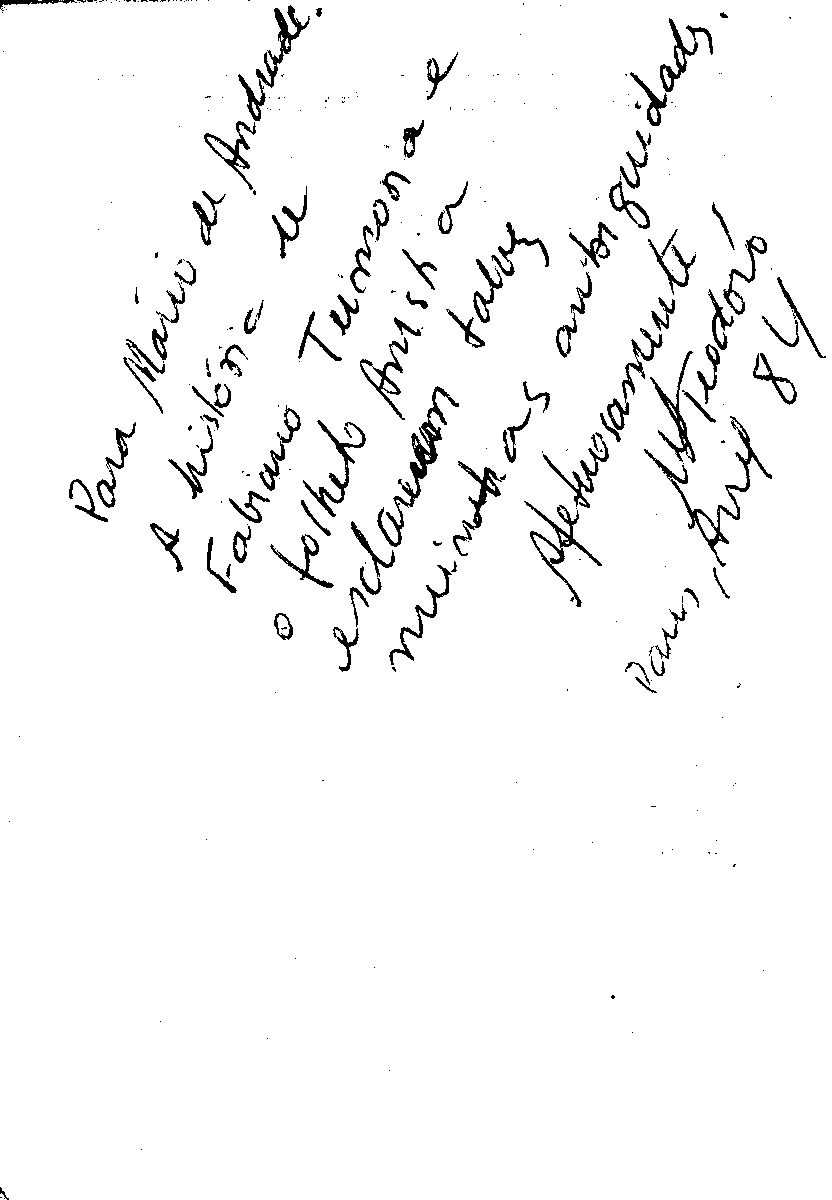 Para Mário de Andrade.
A história de
Fabiano Teimosia e
o folheto Amistia
esclarecem talvez
minhas antiguidads.
Afetuosamente
Teodoró
Paris, 84